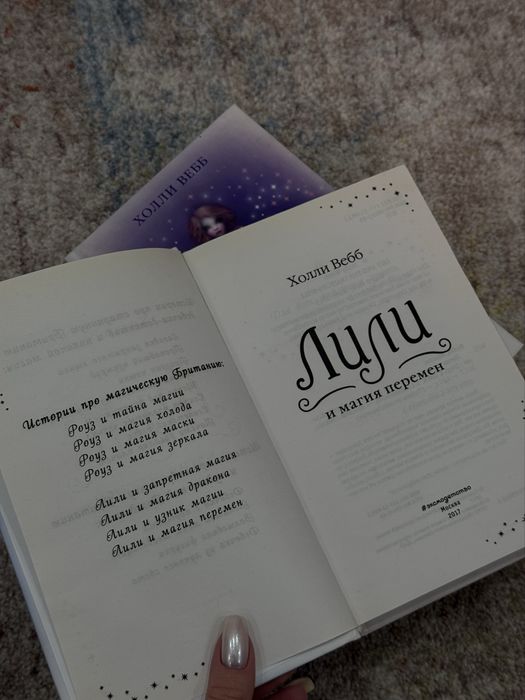 ХОЛЛИ ВЕББ
Истории про магическую Британию:
Роуз и тайна магии
Роуз и магия холода
Роуз и магия маски
Роуз и магия зеркала
Лили и запретная магия
Лили и магия дракона
Лили и узник магии
Лили и магия перемен
Холли Вебб
Лили
и магия перемен
#эксмодетство
Москва
2017